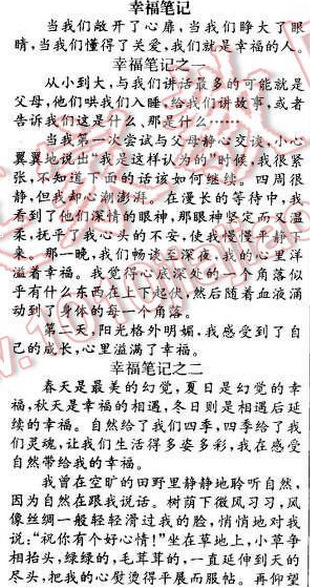 幸福笔记
当我们敞开了心扉,当我们睁大了眼
睛,当我们懂得了关爱,我们就是幸福的人。
幸福笔记之一
从小到大,与我们讲话最多的可能就是
父母,他们哄我们入睡,给我们讲故事,或者
告诉我们这是什么、那是什么……
当我第一次尝试与父母静心交谈,小心
翼翼地说出“我是这样认为的”时候,我很紧
张,不知道下面的话该如何继续。四周很
静,但我却心潮澎湃。在漫长的等待中,我
看到了他们深情的眼神,那眼神坚定而又温
柔,抚平了我心头的不安,使我慢慢平静下
来。那一晚,我们畅谈至深夜,我的心里洋
溢着幸福。我觉得心底深处的一个角落似
乎有什么东西在上下起伏,然后随着血液涌
动到了身体的每一个角落。
第二天,阳光格外明媚,我感受到了自
己的成长,心里溢满了幸福。
幸福笔记之二
春天是最美的幻觉,夏日是幻觉的幸
福,秋天是幸福的相遇,冬日则是相遇后延
续的幸福。自然给了我们四季,四季给了我
们灵魂,让我们生活得多姿多彩,我在感受
自然带给我的幸福。
我曾在空旷的田野里静静地聆听自然,
因为自然在跟我说话。树荫下微风习习,风
像丝绸一般轻轻滑过我的脸,悄悄地对我
说:“祝你有个好心情!”坐在草地上,小草争
相抬头,绿绿的,毛茸茸的,一直延伸到天的
尽头,把我的心熨烫得平展而服帖。再仰望